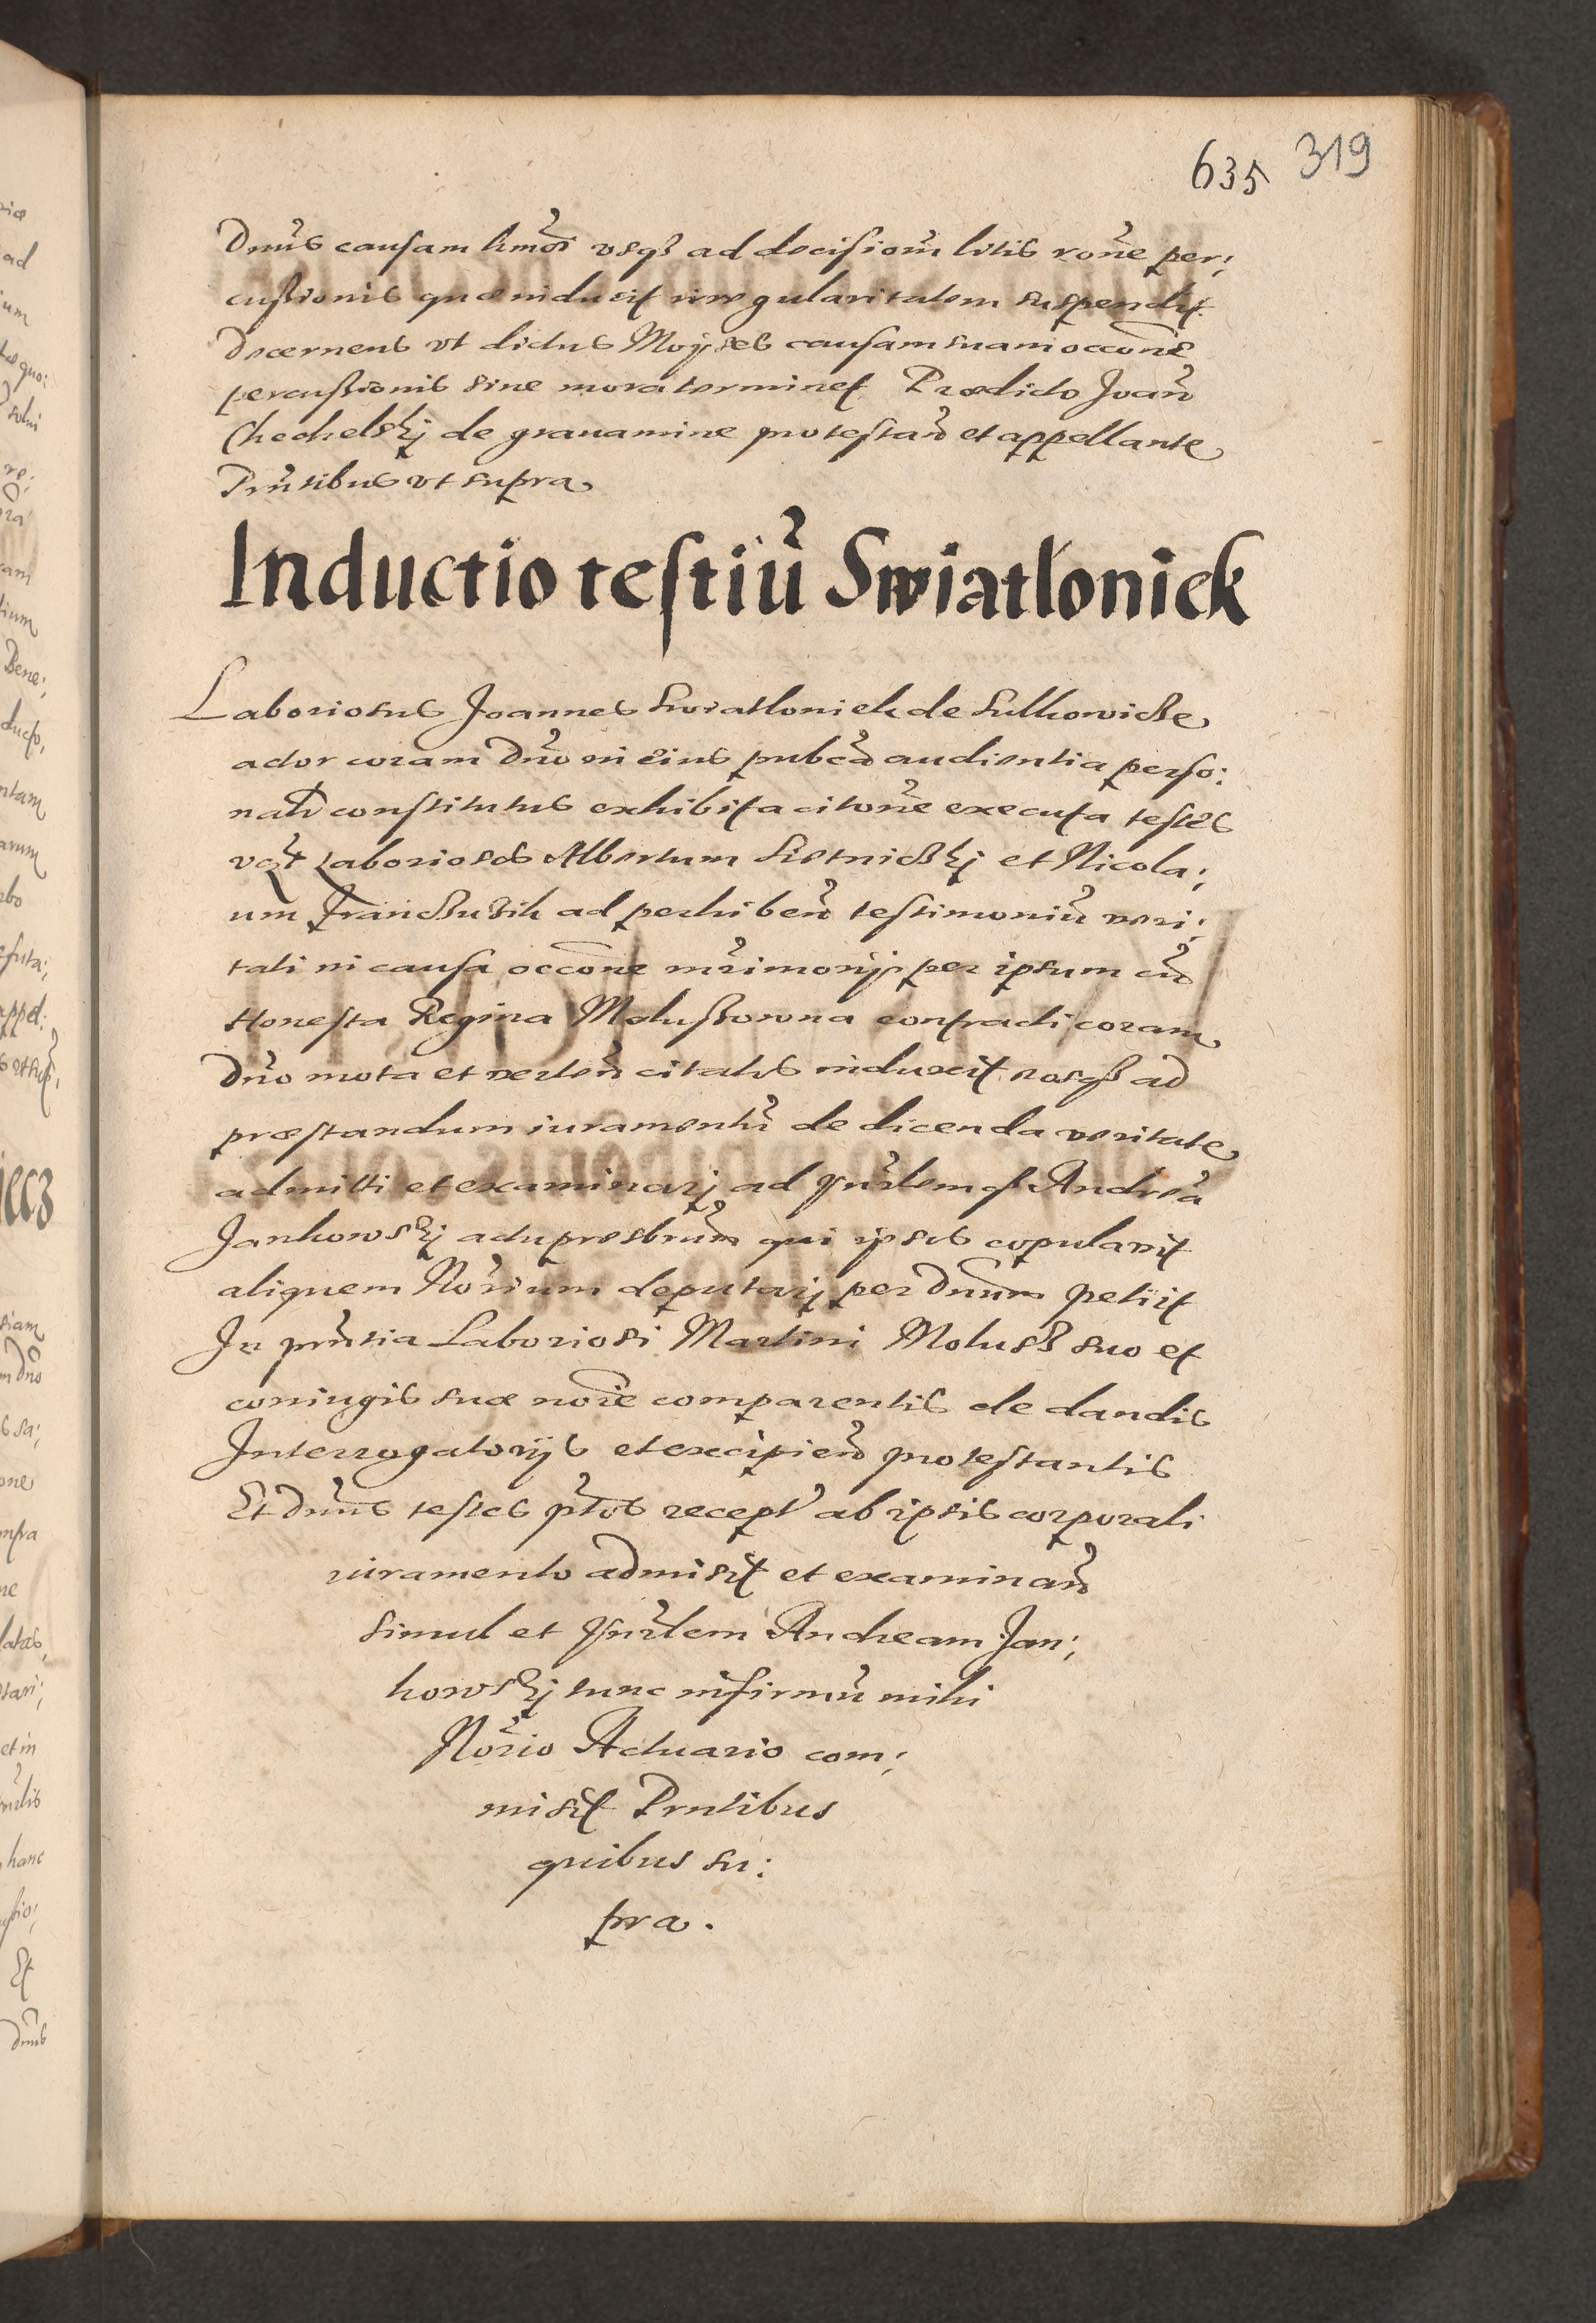 635 319
Dnus causam humoi vsq3 ad decisionu litis rone per;
cussionis quæ inducit irregularitatem suspendit
Decernens vt dictus Moyses causam suam occone
percussionis sine mora terminet Prædicto Joan
Chechelskj de grauamine protestan et appellante
Pntibus vt supra
Inductio testiu Swiatloniek
Laboriosus Joannes Swiatloniek de Sulkowicze
actor coram Dno in eius publca audientia perso:
nalr constitutus exhibita citone executa testes
vczt Laboriosos Albertum Sietnickj et Nicola;
um Franczuzik ad perhiben testimoniu veri;
tati in causa occone mrimonij per ipsum cu
Honesta Regina Moluszowna contracti coram
Dno mota et verten citatos induxit eosq3 ad
præstandum iuramentu de dicenda veritate
admitti et examinarj ad Andrea
Jankowskj qui ipsos copulauit
aliquem Norium deputarj per Dnum petiit
In pntia Laboriosi Martini Molusz suo et
coniugis suæ noie comparentis de dandis
Interrogatorijs et excipien protestantis
Et Dnus testes ptos recept ab ipsis corporali
iuramento admisit et examinan
simul et Andream Jan;
kowskj tunc infirmu mihi
Norio Actuario com;
misit Pntibus
quibus su:
pra.